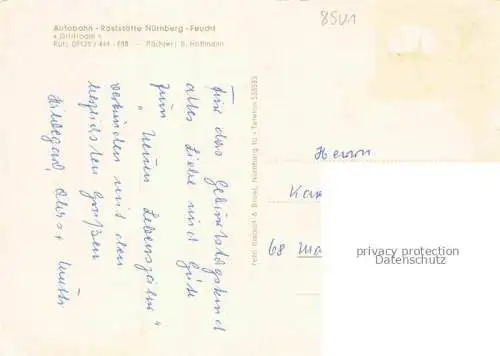 8501
Autobahn - Raststätte Nürnberg - Feucht
« Grillroom »
Ruf: 09128 / 444 - 888 — Pächter: B. Hoffmann
Für das Geburtstagskind
alles Liebe und Gute
zum "neuen Lebensjahr"
verbunden mit den
herzlichsten Grüßen
Hildegard, Mutti
Nürnberg 10 - Telefon
Herrn
68
privacy protection
Datenschutz